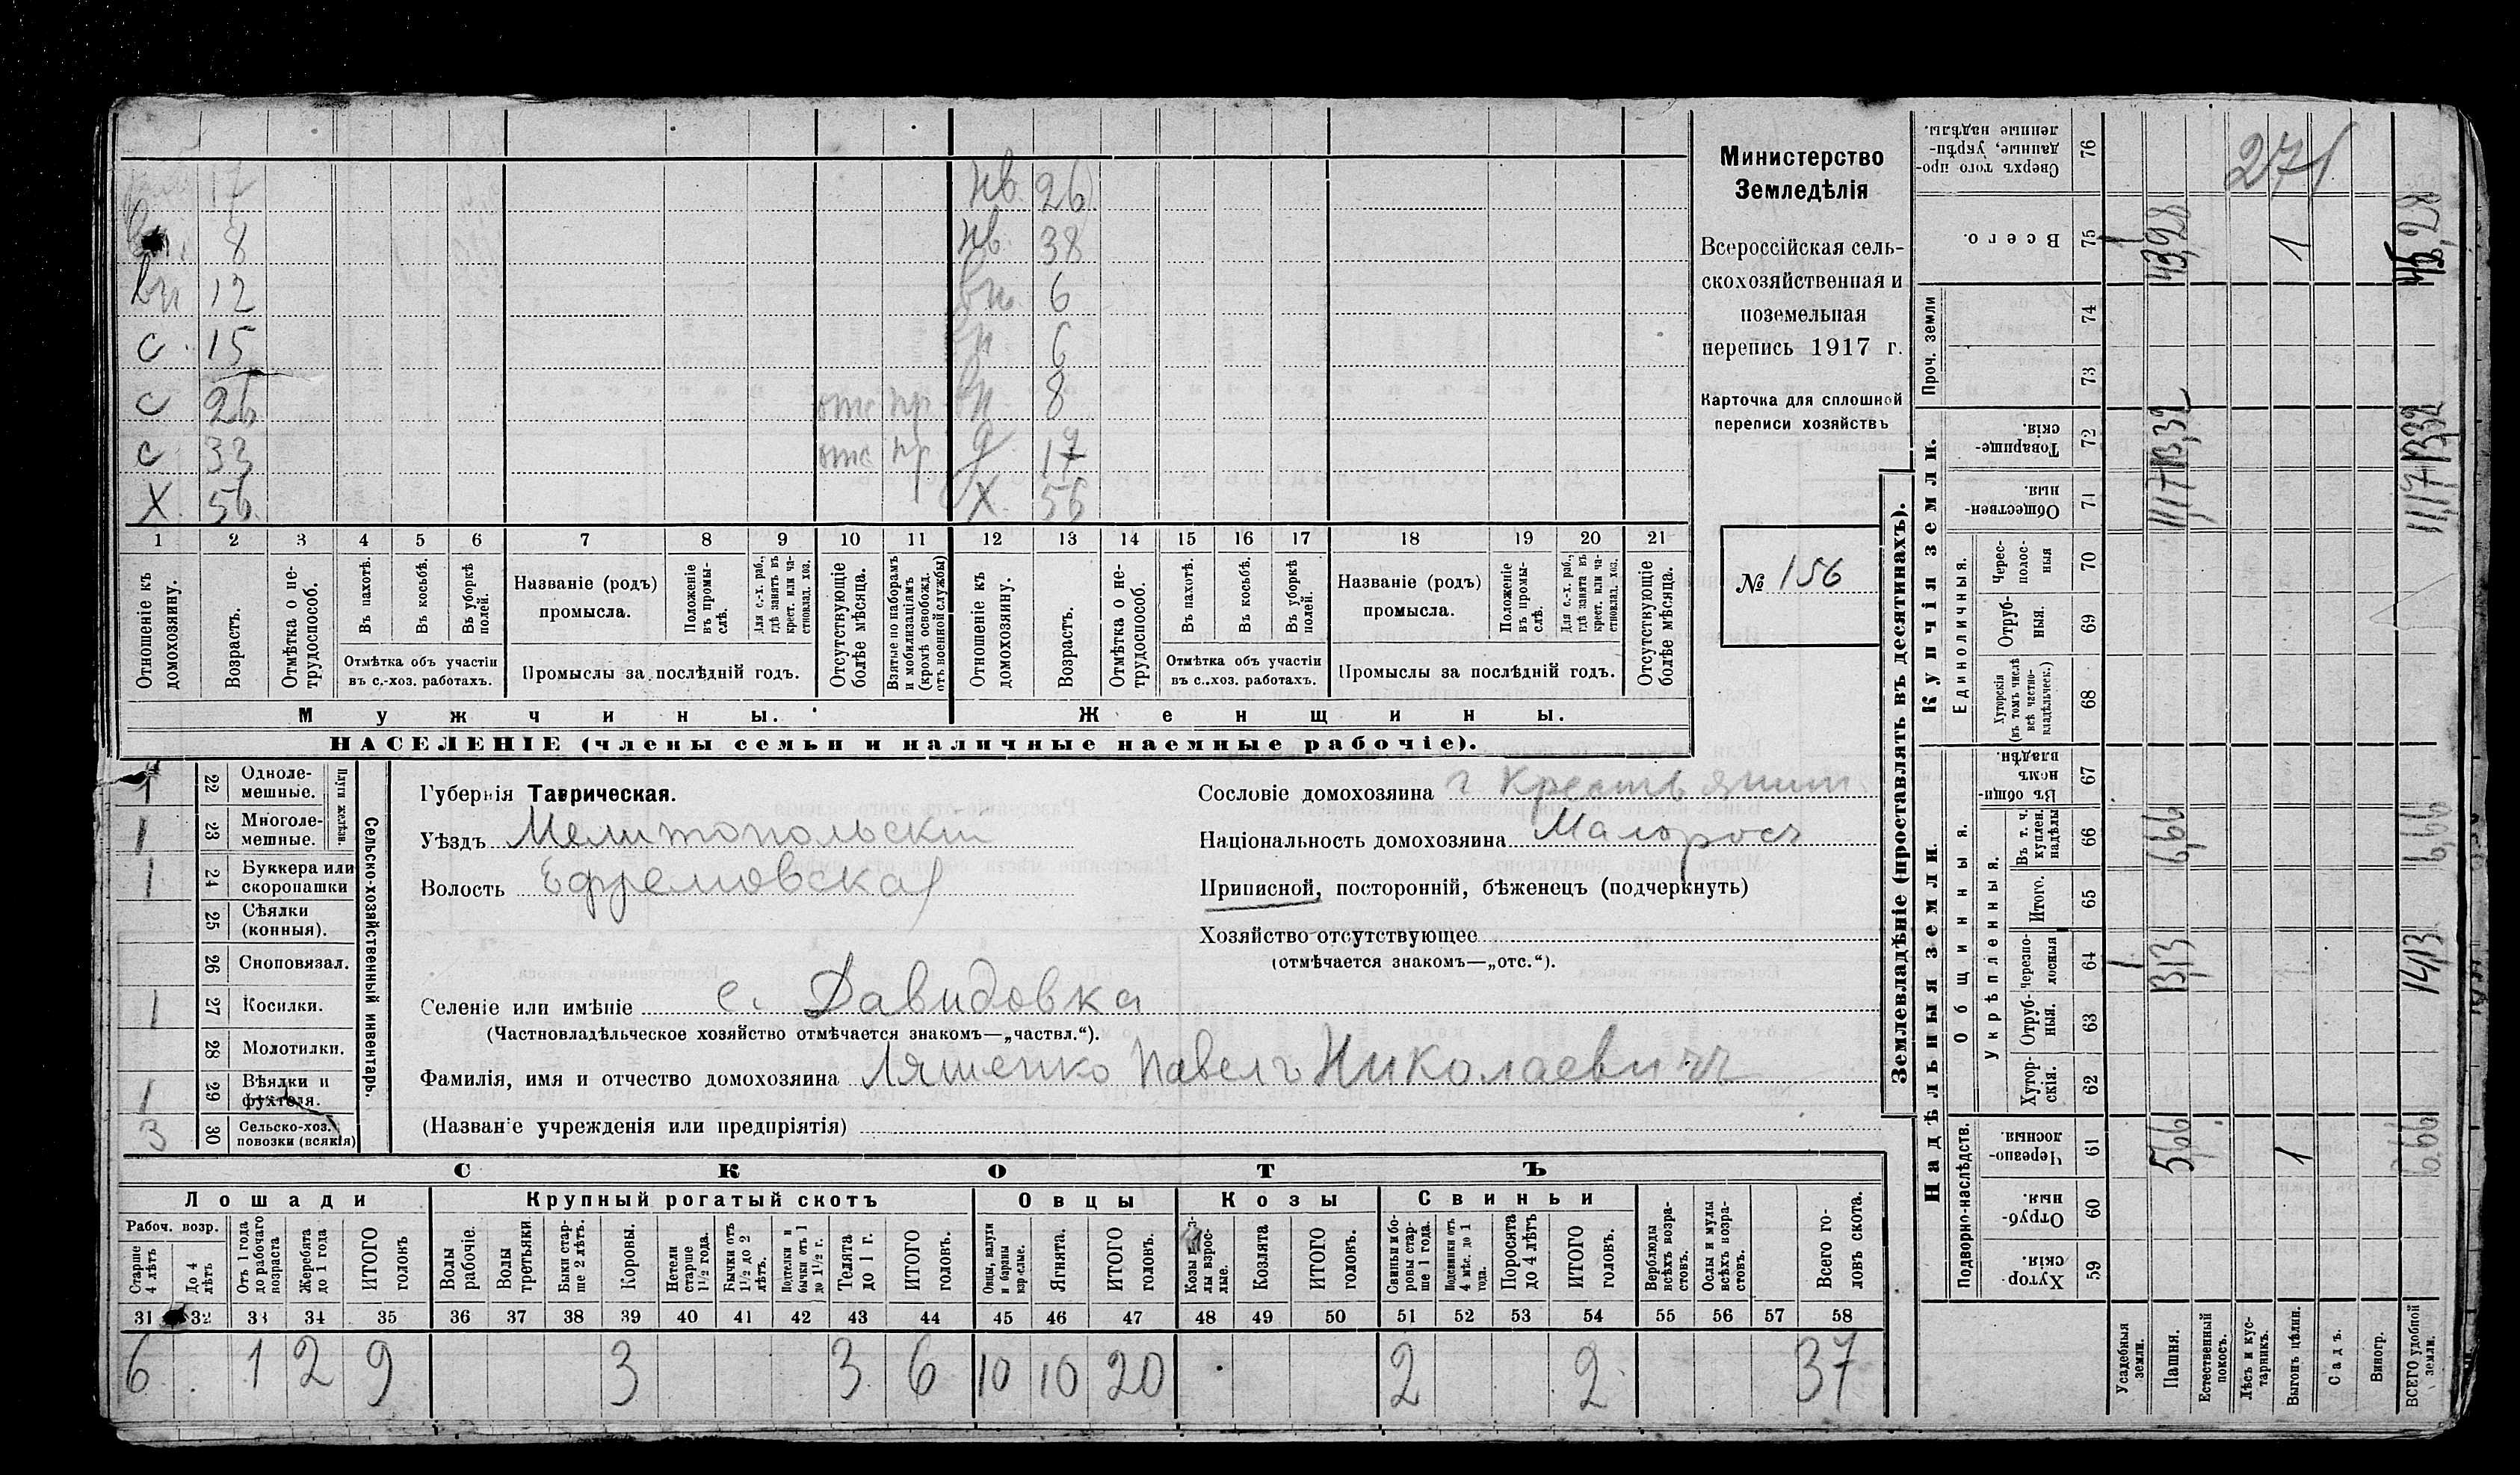 17 нв. 26
8 нв. 38
вн 12 вн. 6
с 15 6
с 26 отс пр вн 8
с 33 отс пр д 17
х 56 х 56
1 2 3 4 5 6 7 8 9 10 11 12 13 14 15 16 17 18 19 20 21
Отношеніе къ домохозяину.
Возрастъ.
Отмѣтка о не-трудоспособ.
Въ пахотѣ.
Въ косьбѣ.
Въ уборкѣ полей.
Отмѣтка объ участіи
въ с.-хоз. работахъ.
Названіе (родъ)
промысла.
Положеніе въ промы-слѣ.
Для с.-х. раб., гдѣ занятъ въ крест. или ча-стновлад. хоз.
Промыслы за послѣдній годъ.
Отсутствующіе болѣе мѣсяца.
Взятые по наборамъ и мобилизаціямъ (кромѣ освобожд. отъ военной службы)
Отношеніе къ домохозяину.
Возрастъ.
Отмѣтка о не-трудоспособ.
Въ пахотѣ.
Въ косьбѣ.
Въ уборкѣ полей.
Отмѣтка объ участіи
въ с.-хоз. работахъ.
Названіе (родъ)
промысла.
Положеніе въ промы-слѣ.
Для с.-х. раб., гдѣ занята въ крест. или ча-стновлад. хоз.
Промыслы за послѣдній годъ.
Отсутствующіе болѣе мѣсяца.
Мужчины. Женщины.
НАСЕЛЕНІЕ (члены семьи и наличные наемные рабочіе).
Министерство
Земледѣлія
Всероссійская сель-
скохозяйственная и
поземельная
перепись 1917 г.
Карточка для сплошной
переписи хозяйствъ
№ 156
Сельско-хозяйственный инвентарь.
Плуги желѣзн.
1 22 Одноле-мешные.
1 23 Многоле-мешные.
1 24 Буккера или скоропашки
25 Сѣялки (конныя).
26 Сноповязал.
1 27 Косилки.
28 Молотилки.
1 29 Вѣялки и фухтеля.
3 30 Сельско-хоз. повозки (всякія)
Губернія Таврическая.
Уѣздъ Мелитопольскій
Волость Ефремовская
Селеніе или имѣніе с. Давидовка
(Частновладѣльческое хозяйство отмѣчается знакомъ—„частвл.“).
Фамилія, имя и отчество домохозяина Ляшенко Павелъ Николаевичъ
(Названіе учрежденія или предпріятія)
Сословіе домохозяина Крестьянин
Національность домохозяина Малоросъ
Приписной, посторонній, бѣженецъ (подчеркнуть)
Хозяйство отсутствующее
(отмѣчается знакомъ—„отс.“).
СКОТЪ
Лошади Крупный рогатый скотъ Овцы Козы Свиньи
Рабоч. возр.
Старше 4 лѣтъ
До 4 лѣтъ
Отъ 1 года до рабочаго возраста
Жеребята до 1 года
ИТОГО головъ
Волы рабочіе.
Волы третьяки.
Быки стар-ше 2 лѣтъ.
Коровы.
Нетели старше 1½ года.
Бычки отъ 1½ до 2 лѣтъ.
Подтелки и бычки отъ 1 до 1½ г.
Телята до 1 г.
ИТОГО головъ.
Овцы, валухи и бараны взрослые.
Ягнята.
ИТОГО головъ.
Козы и коз-лы взрос-лые.
Козлята
ИТОГО головъ.
Свиньи и бо-ровы стар-ше 1 года.
Подсвинки отъ 4 мѣс. до 1 года.
Поросята до 4 лѣтъ
ИТОГО головъ.
Верблюды всѣхъ возра-стовъ.
Ослы и мулы всѣхъ возра-стовъ.
Всего го-ловъ скота.
31 32 33 34 35 36 37 38 39 40 41 42 43 44 45 46 47 48 49 50 51 52 53 54 55 56 57 58
6 1 2 9 3 3 6 10 10 20 2 2 37
Землевладѣніе (проставлять въ десятинахъ).
271
Сверхъ того про-данные, укрѣп-ленные надѣлы. 76
Всего. 75 43,28 1
Купчія земли.
Проч. земли 74 73
Товарище-скія. 72
Обществен-ныя. 71
Единоличныя.
Черес-полос-ныя 70
Отруб-ныя. 69
Хуторскія (въ томъ числѣ всѣ частно-владѣльческ.) 68
Надѣльныя земли.
Общинныя.
Въ общин-номъ владѣн. 67
Укрѣпленныя.
Въ т. ч. куплен. надѣлы 66 6,66 6,66
Итого. 65
Черезпо-лосныя 64 1 13,13 14,13
Отруб-ныя. 63
Хутор-скія. 62
Подворно-наслѣдств.
Черезпо-лосныя. 61 5,66 1 6.66
Отруб-ныя. 60
Хутор-скія. 59
Усадебныя земли.
Пашня.
Естественный покосъ.
Лѣсъ и кус-тарникъ.
Выгонъ цѣлин.
Садъ.
Виногр.
ВСЕГО удобной земли.